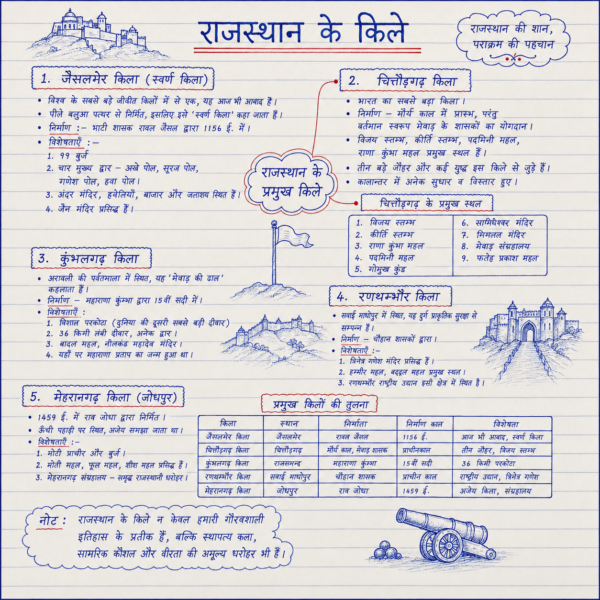 राजस्थान के किले
राजस्थान की शान,
पराक्रम की पहचान
1. जैसलमेर किला (स्वर्ण किला)
• विश्व के सबसे बड़े जीवित किलों में से एक, यह आज भी आबाद है।
• पीले बलुआ पत्थर से निर्मित, इसलिए इसे 'स्वर्ण किला' कहा जाता है।
• निर्माण :- भाटी शासक रावल जैसल द्वारा 1156 ई. में।
• विशेषताएँ :-
1. 99 बुर्ज
2. चार मुख्य द्वार – अखे पोल, सूरज पोल,
गणेश पोल, हवा पोल।
3. अंदर मंदिर, हवेलियाँ, बाजार और जलाशय स्थित हैं।
4. जैन मंदिर प्रसिद्ध हैं।
राजस्थान के
प्रमुख किले
2. चित्तौड़गढ़ किला
• भारत का सबसे बड़ा किला।
• निर्माण – मौर्य काल में प्रारम्भ, परंतु
वर्तमान स्वरूप मेवाड़ के शासकों का योगदान।
• विजय स्तम्भ, कीर्ति स्तम्भ, पदमिनी महल,
राणा कुंभा महल प्रमुख स्थल हैं।
• तीन बड़े जौहर और कई युद्ध इस किले से जुड़े हैं।
• कालान्तर में अनेक सुधार व विस्तार हुए।
चित्तौड़गढ़ के प्रमुख स्थल
1. विजय स्तम्भ
2. कीर्ति स्तम्भ
3. राणा कुंभा महल
4. पदमिनी महल
5. गोमुख कुंड
6. सामिधेश्वर मंदिर
7. मिमलल मंदिर
8. मेवाड़ संग्रहालय
9. फतेह प्रकाश महल
3. कुंभलगढ़ किला
• अरावली की पर्वतमाला में स्थित, यह 'मेवाड़ की ढाल'
कहलाता है।
• निर्माण – महाराणा कुंभा द्वारा 15वीं सदी में।
• विशेषताएँ :
1. विशाल परकोटा (दुनिया की दूसरी सबसे बड़ी दीवार)
2. 36 किमी लंबी दीवार, अनेक द्वार।
3. बादल महल, नीलकंठ महादेव मंदिर।
4. यहाँ पर महाराणा प्रताप का जन्म हुआ था।
4. रणथम्भौर किला
• सवाई माधोपुर में स्थित, यह दुर्ग प्राकृतिक सुरक्षा से
सम्पन्न है।
• निर्माण – चौहान शासकों द्वारा।
• विशेषताएँ :-
1. त्रिनेत्र गणेश मंदिर प्रसिद्ध है।
2. हम्मीर महल, बद्दल महल प्रमुख स्थल।
3. रणथम्भौर राष्ट्रीय उद्यान इसी क्षेत्र में स्थित है।
5. मेहरानगढ़ किला (जोधपुर)
• 1459 ई. में राव जोधा द्वारा निर्मित।
• ऊँची पहाड़ी पर स्थित, अजेय समझा जाता था।
• विशेषताएँ :-
1. मोटी प्राचीर और बुर्ज।
2. मोती महल, फूल महल, शीश महल प्रसिद्ध हैं।
3. मेहरानगढ़ संग्रहालय – समृद्ध राजस्थानी धरोहर।
प्रमुख किलों की तुलना
किला स्थान निर्माता निर्माण काल विशेषता
जैसलमेर किला जैसलमेर रावल जैसल 1156 ई. आज भी आबाद, स्वर्ण किला
चित्तौड़गढ़ किला चित्तौड़गढ़ मौर्य काल, मेवाड़ शासक प्राचीनकाल तीन जौहर, विजय स्तम्भ
कुंभलगढ़ किला राजसमन्द महाराणा कुंभा 15वीं सदी 36 किमी परकोटा
रणथम्भौर किला सवाई माधोपुर चौहान शासक प्राचीन काल राष्ट्रीय उद्यान, त्रिनेत्र गणेश
मेहरानगढ़ किला जोधपुर राव जोधा 1459 ई. अजेय किला, संग्रहालय
नोट : राजस्थान के किले न केवल हमारी गौरवशाली
इतिहास के प्रतीक हैं, बल्कि स्थापत्य कला,
सामरिक कौशल और वीरता की अमूल्य धरोहर भी हैं।